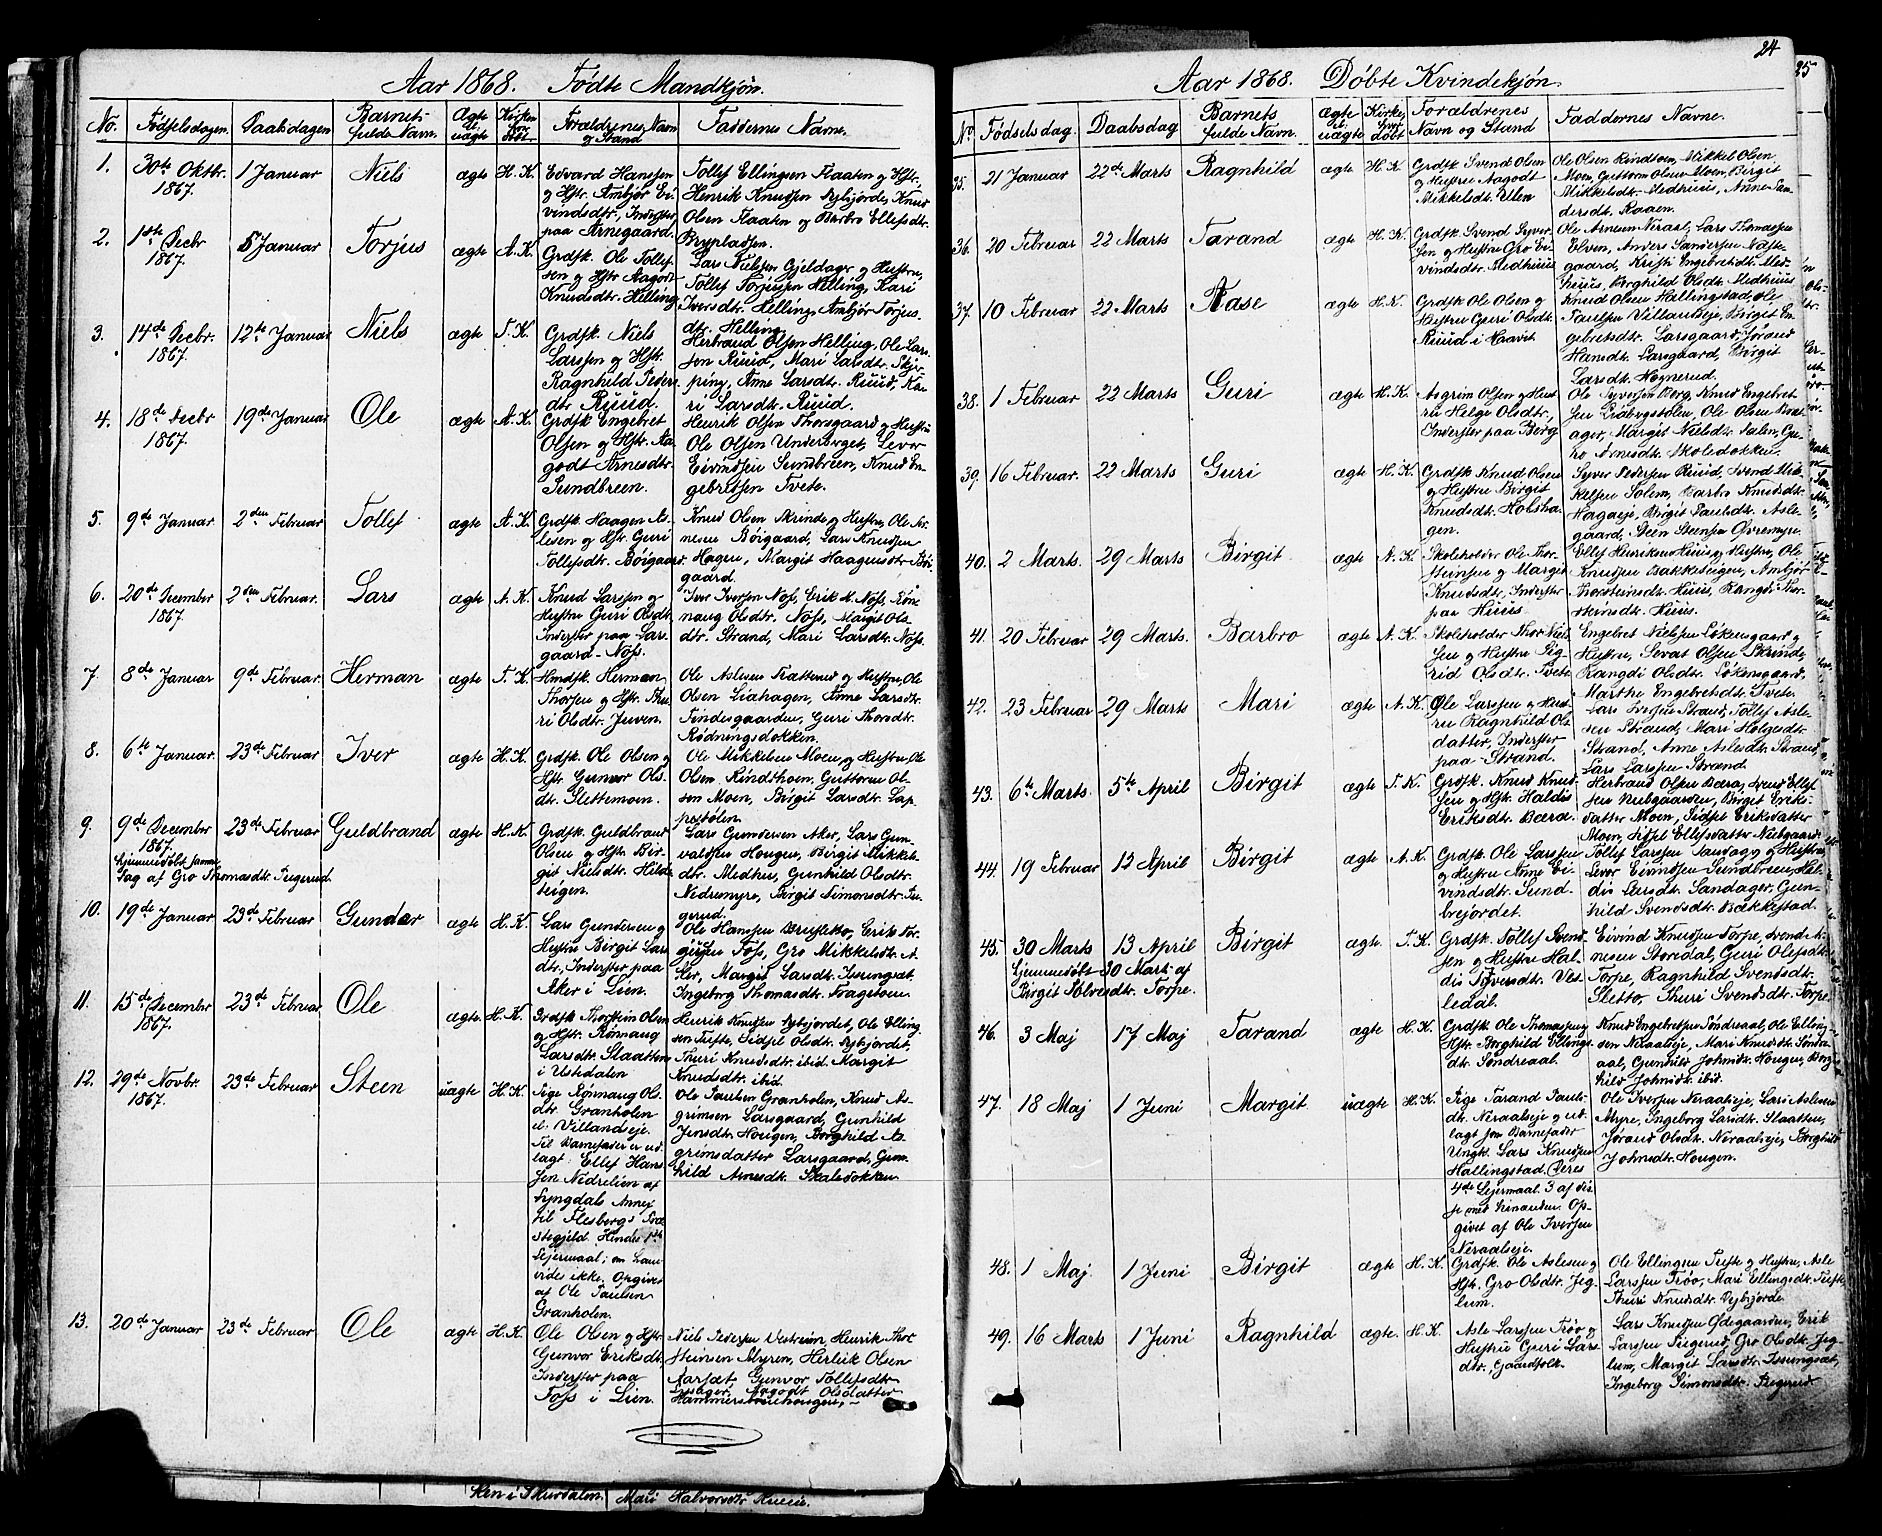 Aar 1868. Fødte Mandkjøn.
No. Fødselsdagen. Daabsdagen Barnets fulde Navn. Ægte el. uægte Kirken hvor døbt. Forældrenes Navn og Stand Faddernes Navne.
1. 30te Oktbr. 1867. 1 Januar Niels ægte H. K.
Edvard Hansen
og Hstr. Ambjør Ei-
vindsdtr., Inderster
paa Arnegaard.
Tollef Ellingsen Flaaten og Hstr.
Henrik Knudsen Nybjørde, Knud
Olsen Flaaten og Barbro Ellefsdtr.
Brypladsen.
2. 1ste Decbr 1867. 5 Januar Torjus ægte A. K.
Grdsk. Ole Tollef-
sen og Hstr. Aagodt
Knudsdtr. Helling
Lars Nielsen Gjeldager og Hustru,
Tollef Torjussen Helling, Kari
Iversdtr. Helling, Ambjør Torjus-
dtr. Helling.
3. 14de Decbr. 1867. 12te Januar Niels ægte T. K.
Grdsk. Niels
Larssen og Hstr.
Ragnhild Peders-
dtr Ruud.
Herbrand Olsen Helling, Ole Lars-
sen Ruud, Mari Larsdtr.
Anne Larsdtr. Ruud, Ka-
ri Larsdtr. Ruud.
4. 18de Decbr 1867. 19de Januar Ole ægte A. K.
Grdsk Engebret
Olsen og Hstr. Aa-
godt Arnesdtr.
Sundbreen.
Henrik Olsen Thorsgaard og Hustru
Ole Olsen Underberget, Sever
Eivindsen Sundbreen, Knud En-
gebretsen Tvete.
5. 9de Januar 2den Februar Tollef ægte A. K.
Grdsk. Haagen As-
lesen og Hstr. Guri
Tollefsdtr. Bøigaard
Knud Olsen Skrinde og Hustru, Ole Ar-
nesen Bøigaard, Lars Knudsen
Hagen, Margit Haagensdtr Bøi-
gaard.
6. 20de December 1867. 2den Februar. Lars ægte A. K.
Knud Larssen og
Hustru Guri Olsdtr.
Inderster paa Lars-
gaard-Næss.
Iver Iversen Næss, Erik N. Næss, Røn-
naug Olsdtr. Næss, Margit Ols-
dtr. Strand, Mari Larsdtr. Næss.
7. 8de Januar 9de Februar. Herman ægte T. K.
Hmdsk. Herman
Thorsen og Hstr. Thu-
ri Olsdtr. Juven.
Ole Aslesen Trætterud og Hustru, Ole
Olsen Liahagen, Anne Larsdtr.
Tendesgaarden, Guri Thorsdtr.
Rødningsdokken.
8. 6te Januar. 23de Februar Iver ægte H. K.
Grdsk. Ole Olsen og
Hstr. Gunvor Ols-
dtr. Slettemoen.
Ole Mikkelsen Moen, og Hustru, Ole
Olsen Rindthoen, Guttorm Ol-
sen Moen, Birgit Larsdtr. Lap-
pestølen.
9. 9de December 1867. 23de Februar Guldbrand ægte H. K.
hjemmedøbt samme
Dag af Gro Thomasdtr. Tuegerud.
Grdsk. Guldbrand
Olsen og Hstr. Bir-
git Nielsdtr. Hilde-
teigen.
Lars Gundersen Aker, Lars Gun-
valdsen Hougen, Birgit Mikkels-
dtr. Medhus, Gunhild Olsdtr.
Nedremyre, Birgit Simonsdtr. Tue-
gerud.
10. 19de Januar 23de Februar Gunder ægte H. K.
Lars Gundersen og
Hustru Birgit Lars-
dtr., Inderster paa
Aker i Lien.
Ole Hansen Brusletto, Erik Tor-
gersen Foss, Gro Mikkelsdtr. A-
ker, Margit Larsdtr. Issungsæt
Ingeborg Thomasdtr. Fragetoen.
11. 15de December 1867. 23de Februar Ole ægte. H. K.
Grdsk Thorstein Olsen
og Hstr. Rønnaug
Larsdtr. Slaatten
i Ustedalen
Henrik Knudsen Nybjørdet, Ole Elling-
sen Tufte, Sidsel Olsdtr. Nybjørdet,
Thuri Knudsdtr. ibid. Margit
Knudsdtr. ibid.
12. 29de Novbr. 1867. 23de Februar Steen uægte H. K.
Pige Rønnaug Ols-
dtr. Granholen
el. Villandeje.
Til Barnefader er ud-
lagt: Ellef Han-
sen Nedrelien af
Lyngdals Annex
til Flesbergs Præ-
stegjeld. Hendes 1ste
Lejermaal; om han
vides ikke. Opgivet
af Ole Paulsen
Granholen.
Ole Paulsen Granholen, Knud As-
grimsen Larsgaard, Gunhild
Jensdtr. Hougen, Borghild As-
grimsdatter Larsgaard, Gun-
hild Arnesdtr. Skaledokken
13. 20de Januar 23de Februar Ole ægte H. K.
Ole Olsen og Hstr
Gunvor Eriksdtr.
Inderster paa
Foss i Lien.
Niels Pedersen Ustreim, Henrik Thor-
steinsen Myren, Herleik Olsen
Aarsæt, Gunvor Tollefsdtr
Aagodt Olsdatter
Hammersbøenhougen,
Sken i Skurdalen. Mari Halvorsdtr
24
25
Aar 1868. Døbte Kvindekjøn.
No. Fødselsdag. Daabsdag Barnets fulde Navn. Ægte el. uægte Kirke, hvor døbt Forældrenes Navn og Stand Faddernes Navne.
35. 21 Januar 22de Marts Ragnhild ægte H. K
Grdsk Svend Olsen
og Hustru Aagodt
Mikkelsdt. Uten
Ole Olsen Rindtoen, Mikkel Olsen
Moen, Guttorm Olsen Moen, Birgit
Mikkelsdtr. Medhuus, Anne San-
dersdt. Raaen.
36. 20 Februar 22 Marts Tarand ægte H. K.
Grdsk Svend Syver-
sen og Hustru Gro Ei-
vindsdtr. Medhuus
Ole Arnesen Neraal, Lars Thomassen
Elven, Anders Sandersen Næste-
gaard, Kristi Engebretsdt. Med-
huus, Borghild Olsdt. Medhuus
37. 10 Februar 22 Marts Aase ægte H. K.
Grdsk Ole Olsen og
Hustru Guri Olsdt.
Ruud i Haavet
Knud Olsen Hallingstad, Ole
Paulsen Villandseje, Birgit En-
gebretsdtr. Larsgaard, Jørand
Hansdt. Larsgaard, Birgit
Larsdt. Høgnerud.
38. 1 Februar 22 Marts Guri ægte H. K.
Asgrim Olsen og Hust-
ru Helge Olsdtr.,
Inderster paa Berg
Ole Syversen Berg, Knud Engebret-
sen Ole Olsen
ager, Margit Nielsdtr. Dalen, Gu-
ro Arnesdt. Skoledokken.
39. 16 Februar. 22 Marts Guri ægte H. K.
Grdsk Knud Olsen
og Hustru Birgit
Knudsdt. Holsha-
gen.
Syver Pedersen Ruud, Svend Mik-
kelsen Solem, Barbro Knudsdt.
Hagaeje, Birgit Paulsdt. Asle-
gaard, Steen Steensen Øvremyre.
40. 2 Marts. 29 Marts Birgit ægte A. K
Skoleholder Ole Thor-
steinsen og Margit
Knudsdtr., Inderster
paa Huus
Ellef Henriksen Huus og Hustru, Ole
Knudsen Bakketeigen, Ambjør
Thorsteinsdt. Huus, Rangdi Thor-
steinsdt. Huus.
41. 20 Februar 29 Marts. Barbro ægte A. K.
Skoleholder Thor Niel-
sen og Hustru Sig-
rid Olsdt. Tvete
Engebret Nielsen Løkensgaard og
Hustru, Sevat Olsen Skrinde,
Rangdi Olsdtr. Løkensgaard,
Marthe Engebretsdt. Tvete.
42. 23 Februar 29 Marts Mari ægte A. K.
Ole Larssen og Hust-
ru Ragnhild Ols-
datter, Inderster
paa Strand.
Lars Iversen Strand, Tollef Asle-
sen Strand, Mari Helgesdt.
Strand, Anne Aslesdt. Strand,
Lars Larssen Strand.
43. 6te Marts. 5te April Birgit ægte T. K.
Grdsk. Knud Knud-
sen og Hstr. Haldis
Eriksdt. Bæra.
Herbrand Olsen Bæra, Svend Ellef-
sen Nubgaarden, Birgit Eriks-
datter Moen, Sidsel Eriksdatter
Moen, Sidsel Ellefsdatter Nubgaard.
44. 19 Februar 12 April Birgit ægte A. K.
Grdsk. Ole Larssen
og Hustru Anne Ei-
vindsdt. Sund-
brejordet.
Tollef Larssen Sandager og Hustru
Sever Eivindsen Sundbreen, Hal-
dis Larsdt. Sandager, Gun-
hild Svendsdt. Bækkestad.
45. 30 Marts 13 April Birgit ægte. T. K.
Hjemmedøbt 30 Mart. af
Birgit Halvorsdtr. Torpe.
Grdsk. Tollef Svend-
sen og Hustru Hal-
dis Syversdt. Ves-
ledal.
Eivind Knudsen Torpe, Svend Ar-
nesen Storedal, Guri Olefsdtr.
Torpe, Ragnhild Svendsdt.
Sletto, Thuri Svendsdt. Torpe
46. 3 Maj 17 Maj Tarand ægte H. K.
Grdsk. Ole Thomassen og
Hstr. Borghild Ellings-
dt. Søndreaal.
Knud Engebretsen Søndreaal, Ole Elling-
sen Neraalseje, Mari Knudsdt. Søndre-
aal, Gunhild Johnsdt. Hougen, Borg-
hild Johnsdt. ibid.
47. 18 Maj 1 Juni Margit uægte H. K.
Pige Tarand Pauls-
dt. Neraalseje og ud-
lagt som Barnefader
Ungk. Lars Knudsen
Hallingstad. Deres
4de Lejermaal. 3 af dis-
se med hinanden. Op-
givet af Ole Iversen
Neraalseje.
Ole Iversen Neraalseje, Lars Aslesen
Myre, Ingeborg Larsdt. Slaatten,
Jørand Olsdt. Neraalseje, Borghild
Johnsdtr. Hougen.
48. 1 Maj. 1 Juni Birgit ægte H. K.
Grdsk. Ole Aslesen og
Hstr. Gro Olsdtr. Jeg-
lum.
Ole Ellingsen Tufte og Hustru, Asle
Larssen Trøo, Mari Ellingsdt. Tufte,
Thuri Knudsdt. Nybjørde
49. 16 Marts 1 Juni Ragnhild ægte. H. K.
Asle Larssen Trøo og
Hustru Guri Lars-
dtr., Gaardfolk.
Lars Knudsen Ødegaarden, Erik
Larssen Tuegerud, Gro Olsdt. Jeg-
lum, Margit Larsdt. Issungsæt,
Ingeborg Simonsdtr. Tuegerud